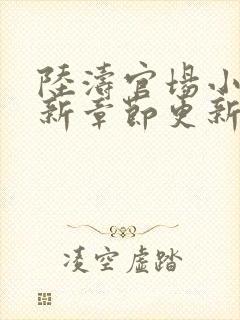 陸濤官場小
新章節更新
凌空虛踏